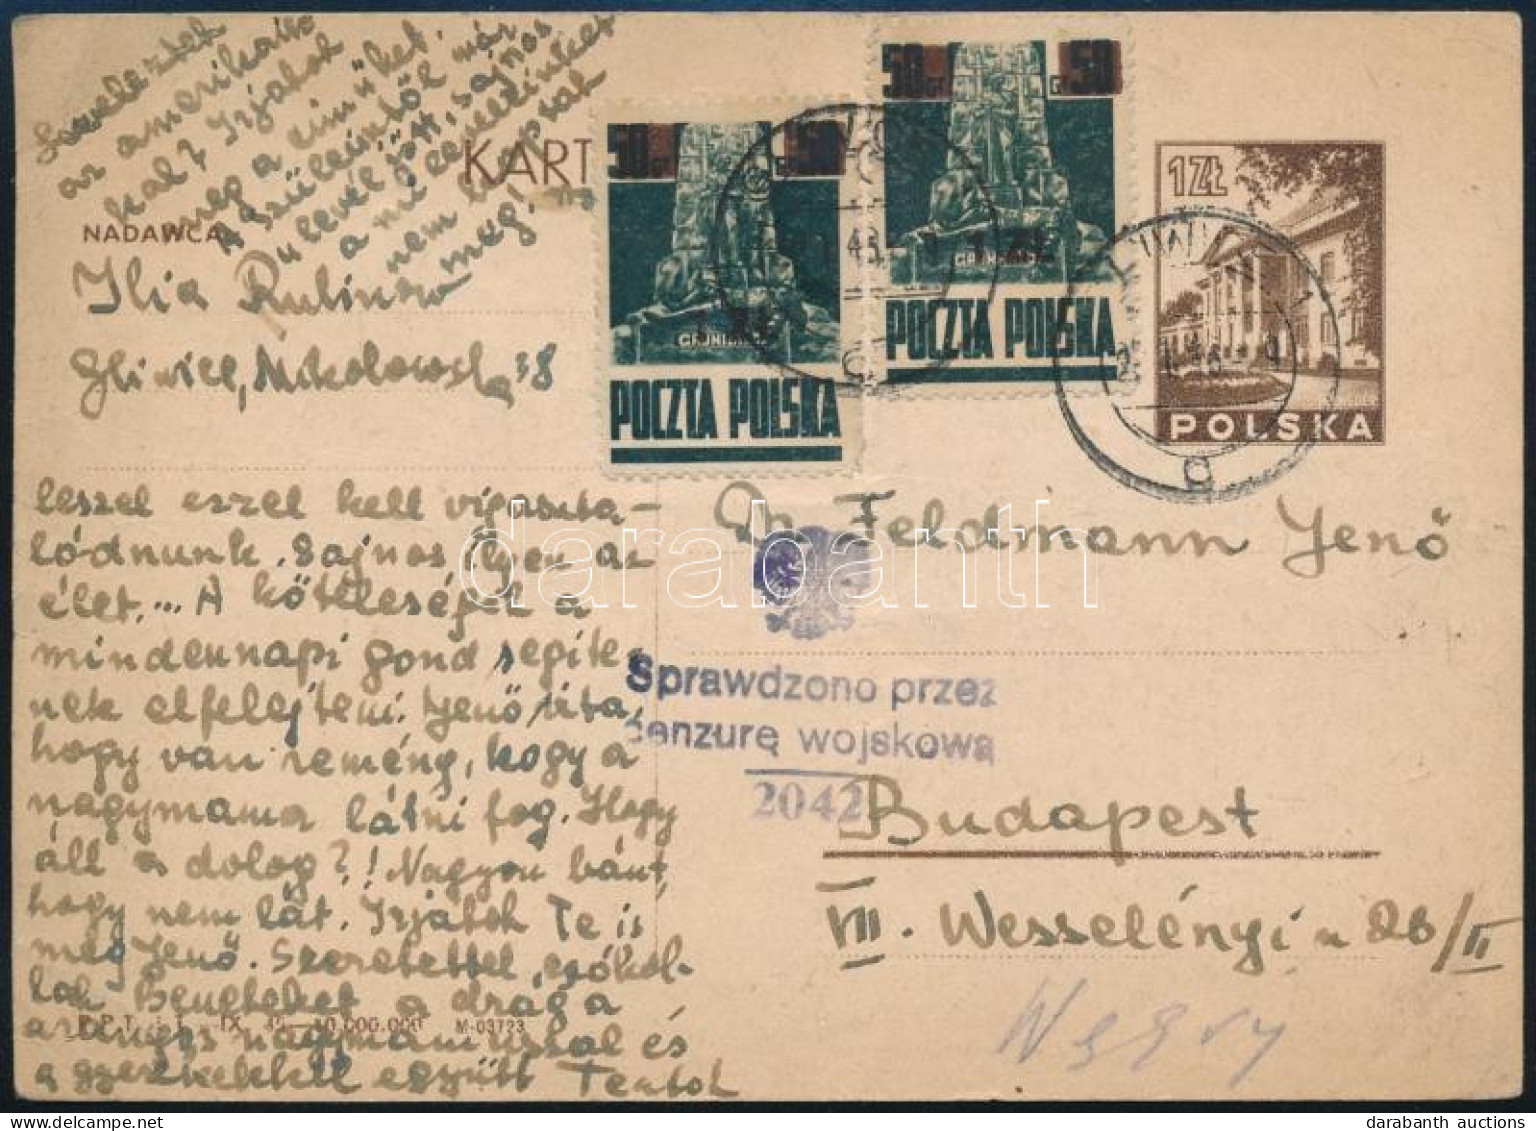 Leveleztek
az amerikai
kal? Írjátok
meg a címüket.
A szüleimtől már
levél jött, sajnos
a mi leveleinket
nem kapták
meg!
KART
NADAWCA
Ilia Rubinow
Gliwice, Mikołowska 38
50 gr 50
1 ZŁ
GRUNWALD
POCZTA POLSKA
50 gr 50
1 ZŁ
GRUNWALD
POCZTA POLSKA
1 ZŁ
POLSKA
leszel ezzel kell vigaszta-
lódnunk. Sajnos ilyen az
élet... A kötelességek a
mindennapi gond segíte-
nek elfelejteni. Jenő írta,
hogy van remény, hogy a
nagymama látni fog. Hogy
áll a dolog?! Nagyon bánt,
hogy nem lát. Írjatok Te is
meg Jenő. Szeretettel csókol-
lak Benneteket a drága
nagymamussal és
a gyerekekkel együtt Teatok
P.P.T. i T. IX. 10.000.000 M-03723
Dr. Feldmann Jenő
Sprawdzono przez
cenzurę wojskową
2042
Budapest
VII. Wesselényi u 26/II
Węgry
darabanth
darabanth auctions